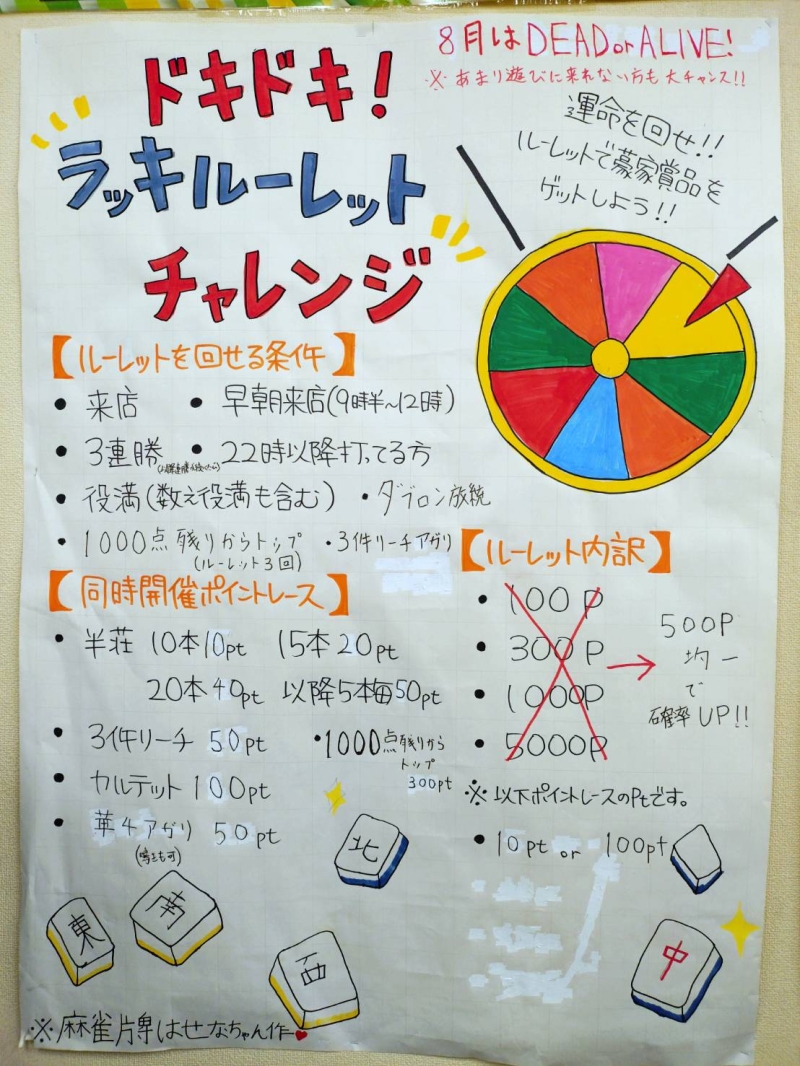 8月はDEADorALIVE!
※あまり遊びに来れない方も大チャンス!!
ドキドキ!
ラッキルーレット
チャレンジ
運命を回せ!!
ルーレットで豪家賞品を
ゲットしよう!!
【ルーレットを回せる条件】
• 来店 • 早朝来店(9時半~12時)
• 3連勝 • 22時以降打ってる方
• 役満(数え役満も含む) ・ダブロン放銃
・1000点残りからトップ ・3件リーチアガリ
(ルーレット3回)
【同時開催ポイントレース】
• 半荘 10本10pt 15本20pt
20本40pt 以降5本毎50pt
• 3件リーチ 50pt
• カルテット 100pt
• 華4アガリ 50pt
(鳴きも可)
•1000点残りから
トップ
300pt
【ルーレット内訳】
• 100P
• 300P
• 1000P
• 5000P
→ 500P
均一
で
確率UP!!
※以下ポイントレースのPtです。
• 10pt or 100pt
北
東
南
西
中
※麻雀牌はせなちゃん作♥